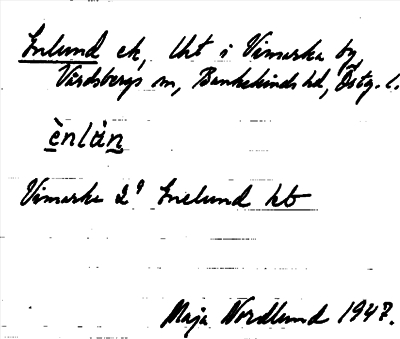 Enlund ek, lht i Vimarka by
Vårdsbergs sn, Bankekinds hd, Östg. l.
ènlùn
Vimarka 2⁹ Enelund kb
Maja Nordlund 1947.